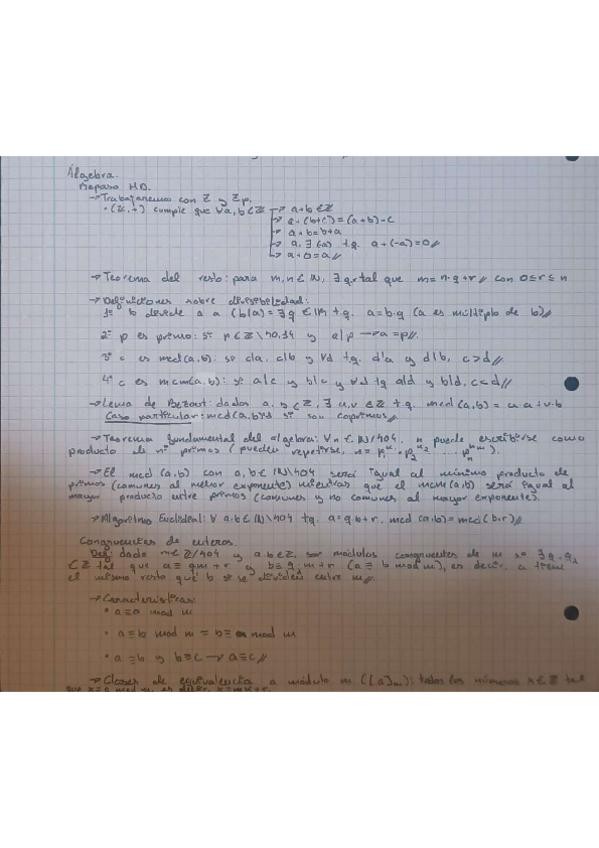 Álgebra.
Repaso MD.
→ Trabajaremos con ℤ y ℤp.
• (ℤ,+) cumple que ∀a,b∈ℤ → a+b∈ℤ
→ a+(b+c)=(a+b)+c
→ a+b=b+a
→ a, ∃(-a) t.q. a+(-a)=0//
→ a+0=a//
→ Teorema del resto: para m,n∈ℕ, ∃ q,r tal que m=n·q+r// con 0≤r≤n
→ Definiciones sobre divisibilidad:
1º b divide a a (b|a)=∃q∈ℕ t.q. a=b·q (a es múltiplo de b)//
2º p es primo: si p∈ℤ\{0,1} y a|p → a=p//.
3º c es mcd(a,b): si c|a, c|b y ∀d t.q. d|a y d|b, c>d//
4º c es mcm(a,b): si a|c y b|c y ∀d tq a|d y b|d, c<d//
→ Lema de Bezout: dados a,b∈ℤ, ∃ u,v∈ℤ t.q. mcd(a,b)=u·a+v·b
Caso particular: mcd(a,b)=1 si son coprimos//
→ Teorema fundamental del álgebra: ∀n∈ℕ\{0}, n puede escribirse como
producto de nº primos (pueden repetirse,
→ El mcd(a,b) con a,b∈ℕ\{0} será igual al mínimo producto de
primos (comunes al menor exponente) mientras que el mcm(a,b) será igual al
mayor producto entre primos (comunes y no comunes al mayor exponente).
→ Algoritmo Euclideal: ∀ a,b∈ℕ\{0} tq. a=q·b+r, mcd(a,b)=mcd(b,r)//
Congruentes de enteros.
Def: dado m∈ℤ/{0} y a,b∈ℤ, son módulos congruentes de m si ∃ q,q₁
∈ℤ tal que a≡qm+r y b≡q₁m+r (a≡b mod m), es decir, a tiene
el mismo resto que b si se dividen entre m//.
→ Características:
• a≡a mod m
• a≡b mod m = b≡a mod m
• a≡b y b≡c → a≡c//
→ Clases de equivalencia a módulo m ([a]m): todos los números x∈ℤ tal
que x≡a mod m, es decir, x=mk+r.